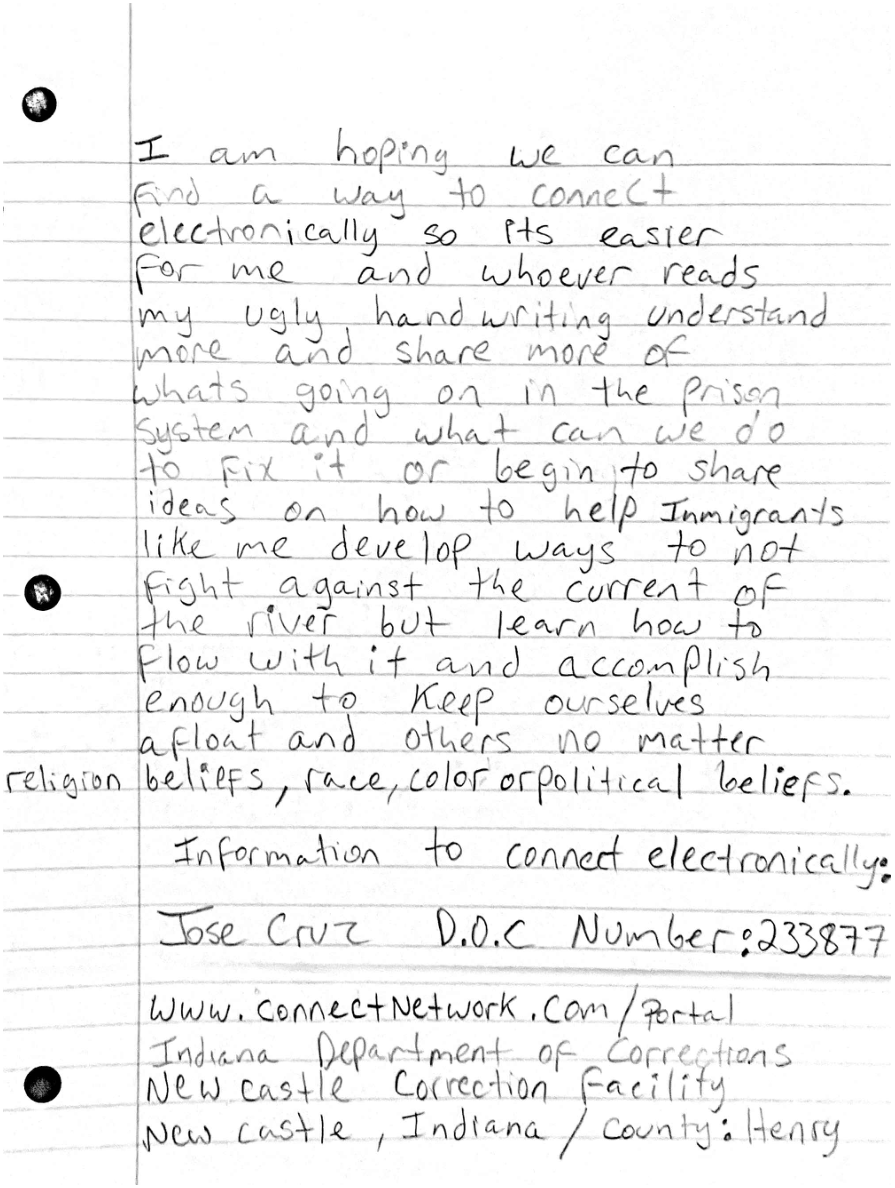 I am hoping we can
find a way to connect
electronically so its easier
for me and whoever reads
my ugly handwriting understand
more and share more of
whats going on in the prison
system and what can we do
to fix it or begin to share
ideas on how to help Inmigrants
like me develop ways to not
fight against the current of
the river but learn how to
flow with it and accomplish
enough to keep ourselves
afloat and others no matter
religion beliefs, race, color or political beliefs.
Information to connect electronically:
Jose Cruz D.O.C Number: 233877
www.connectNetwork.com/Portal
Indiana Department of Corrections
New castle Correction Facility
New castle, Indiana / county: Henry